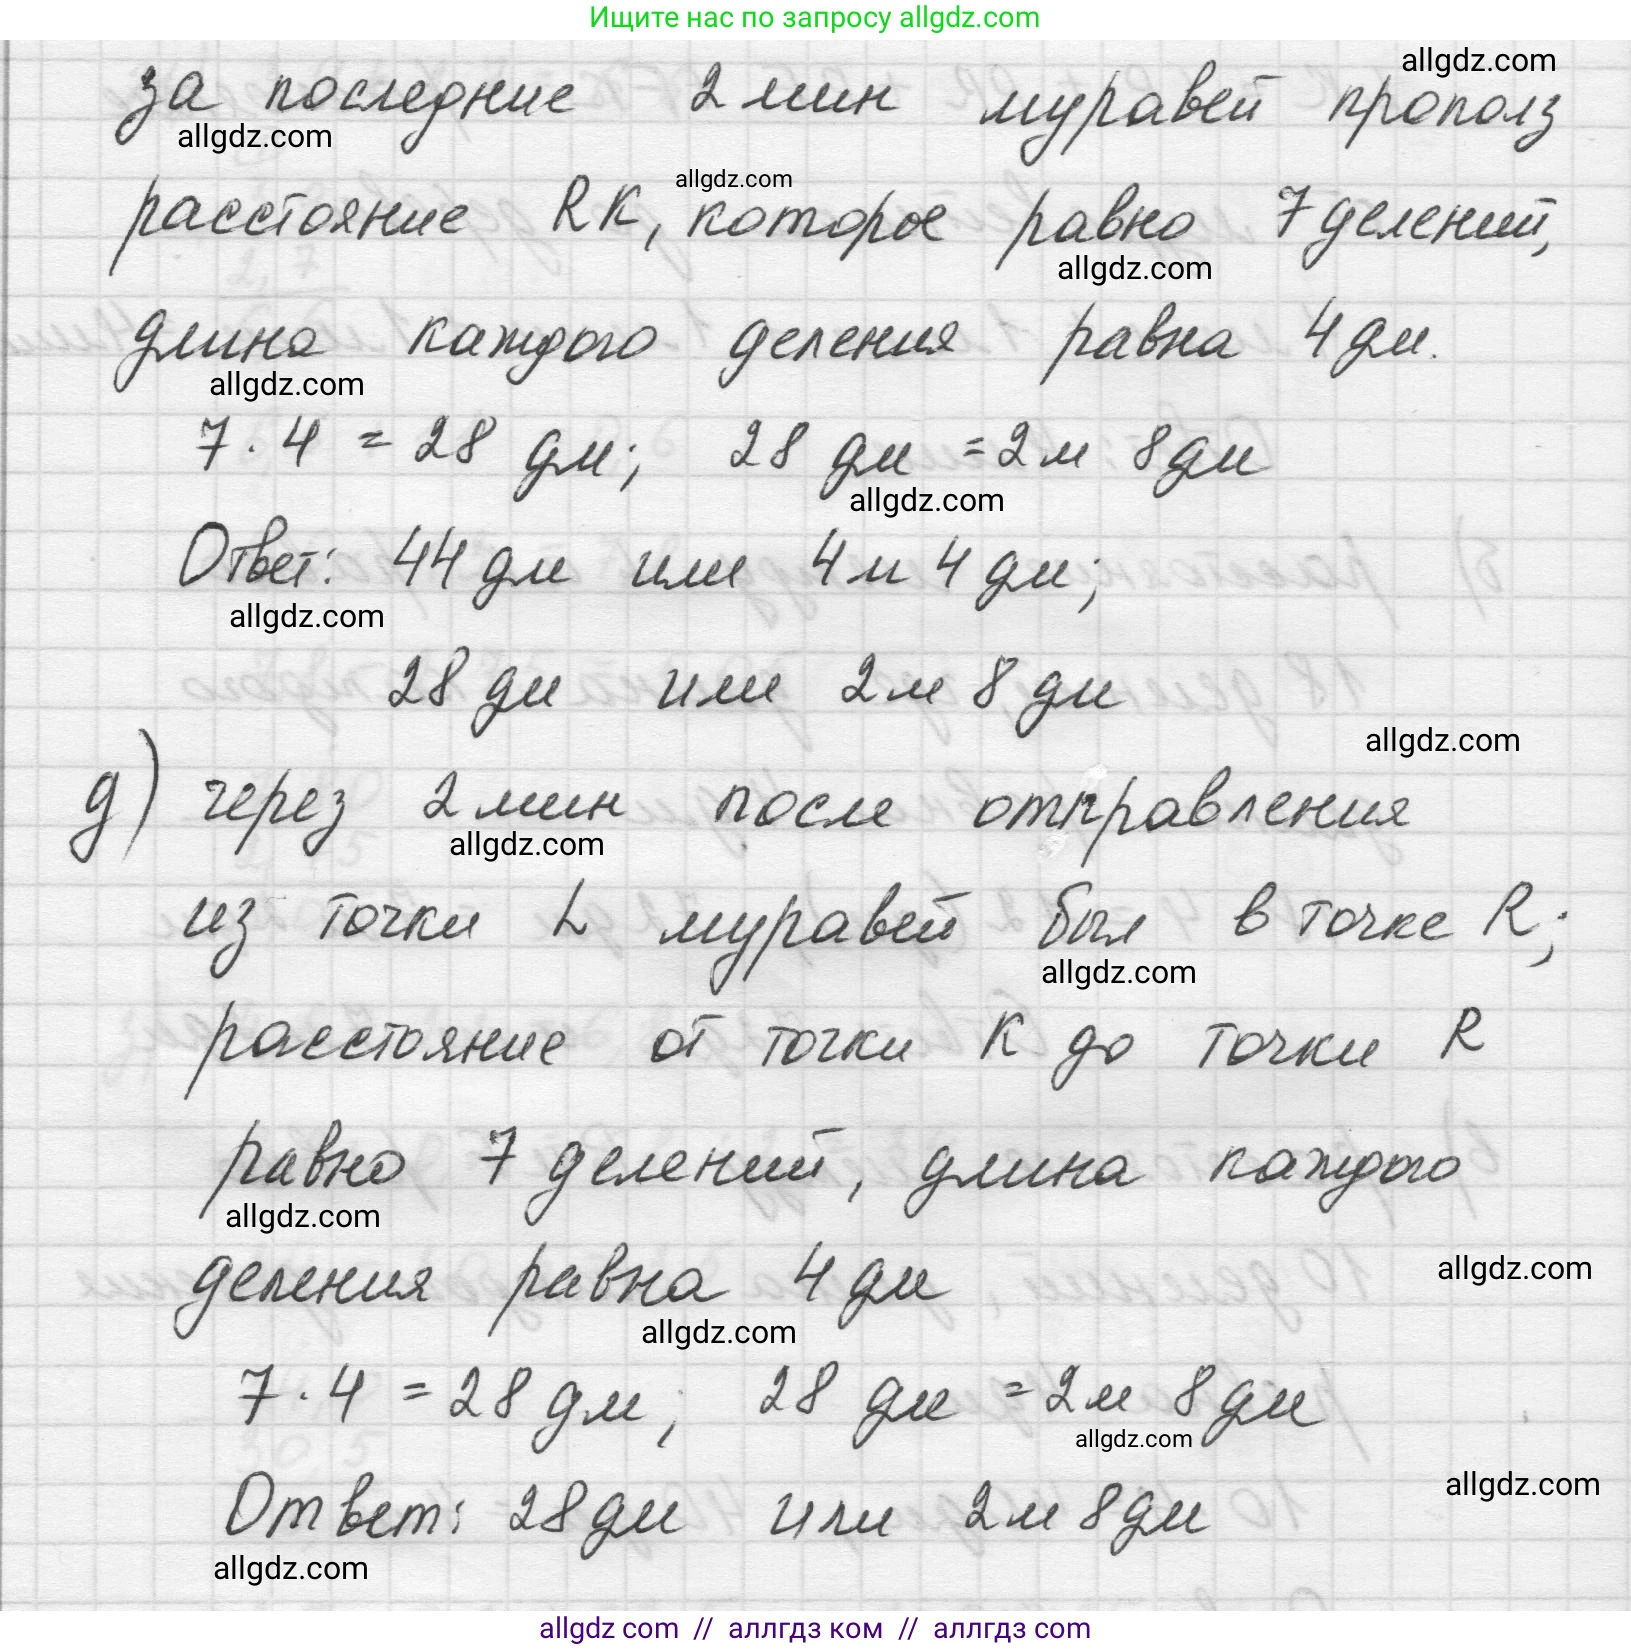 Ищите нас по запросу allgdz.com
allgdz.com
за последние 2 мин муравей прополз
allgdz.com
allgdz.com
расстояние RK, которое равно 7 делений,
allgdz.com
длина каждого деления равна 4 дм.
allgdz.com
7 · 4 = 28 дм; 28 дм = 2 м 8 дм
allgdz.com
Ответ: 44 дм или 4 м 4 дм;
allgdz.com
28 дм или 2 м 8 дм
allgdz.com
д) через 2 мин после отправления
allgdz.com
из точки L муравей был в точке R;
allgdz.com
расстояние от точки K до точки R
равно 7 делений, длина каждого
allgdz.com
деления равна 4 дм
allgdz.com
allgdz.com
7 · 4 = 28 дм; 28 дм = 2 м 8 дм
allgdz.com
allgdz.com
Ответ: 28 дм или 2 м 8 дм
allgdz.com
allgdz com // аллгдз ком // аллгдз com